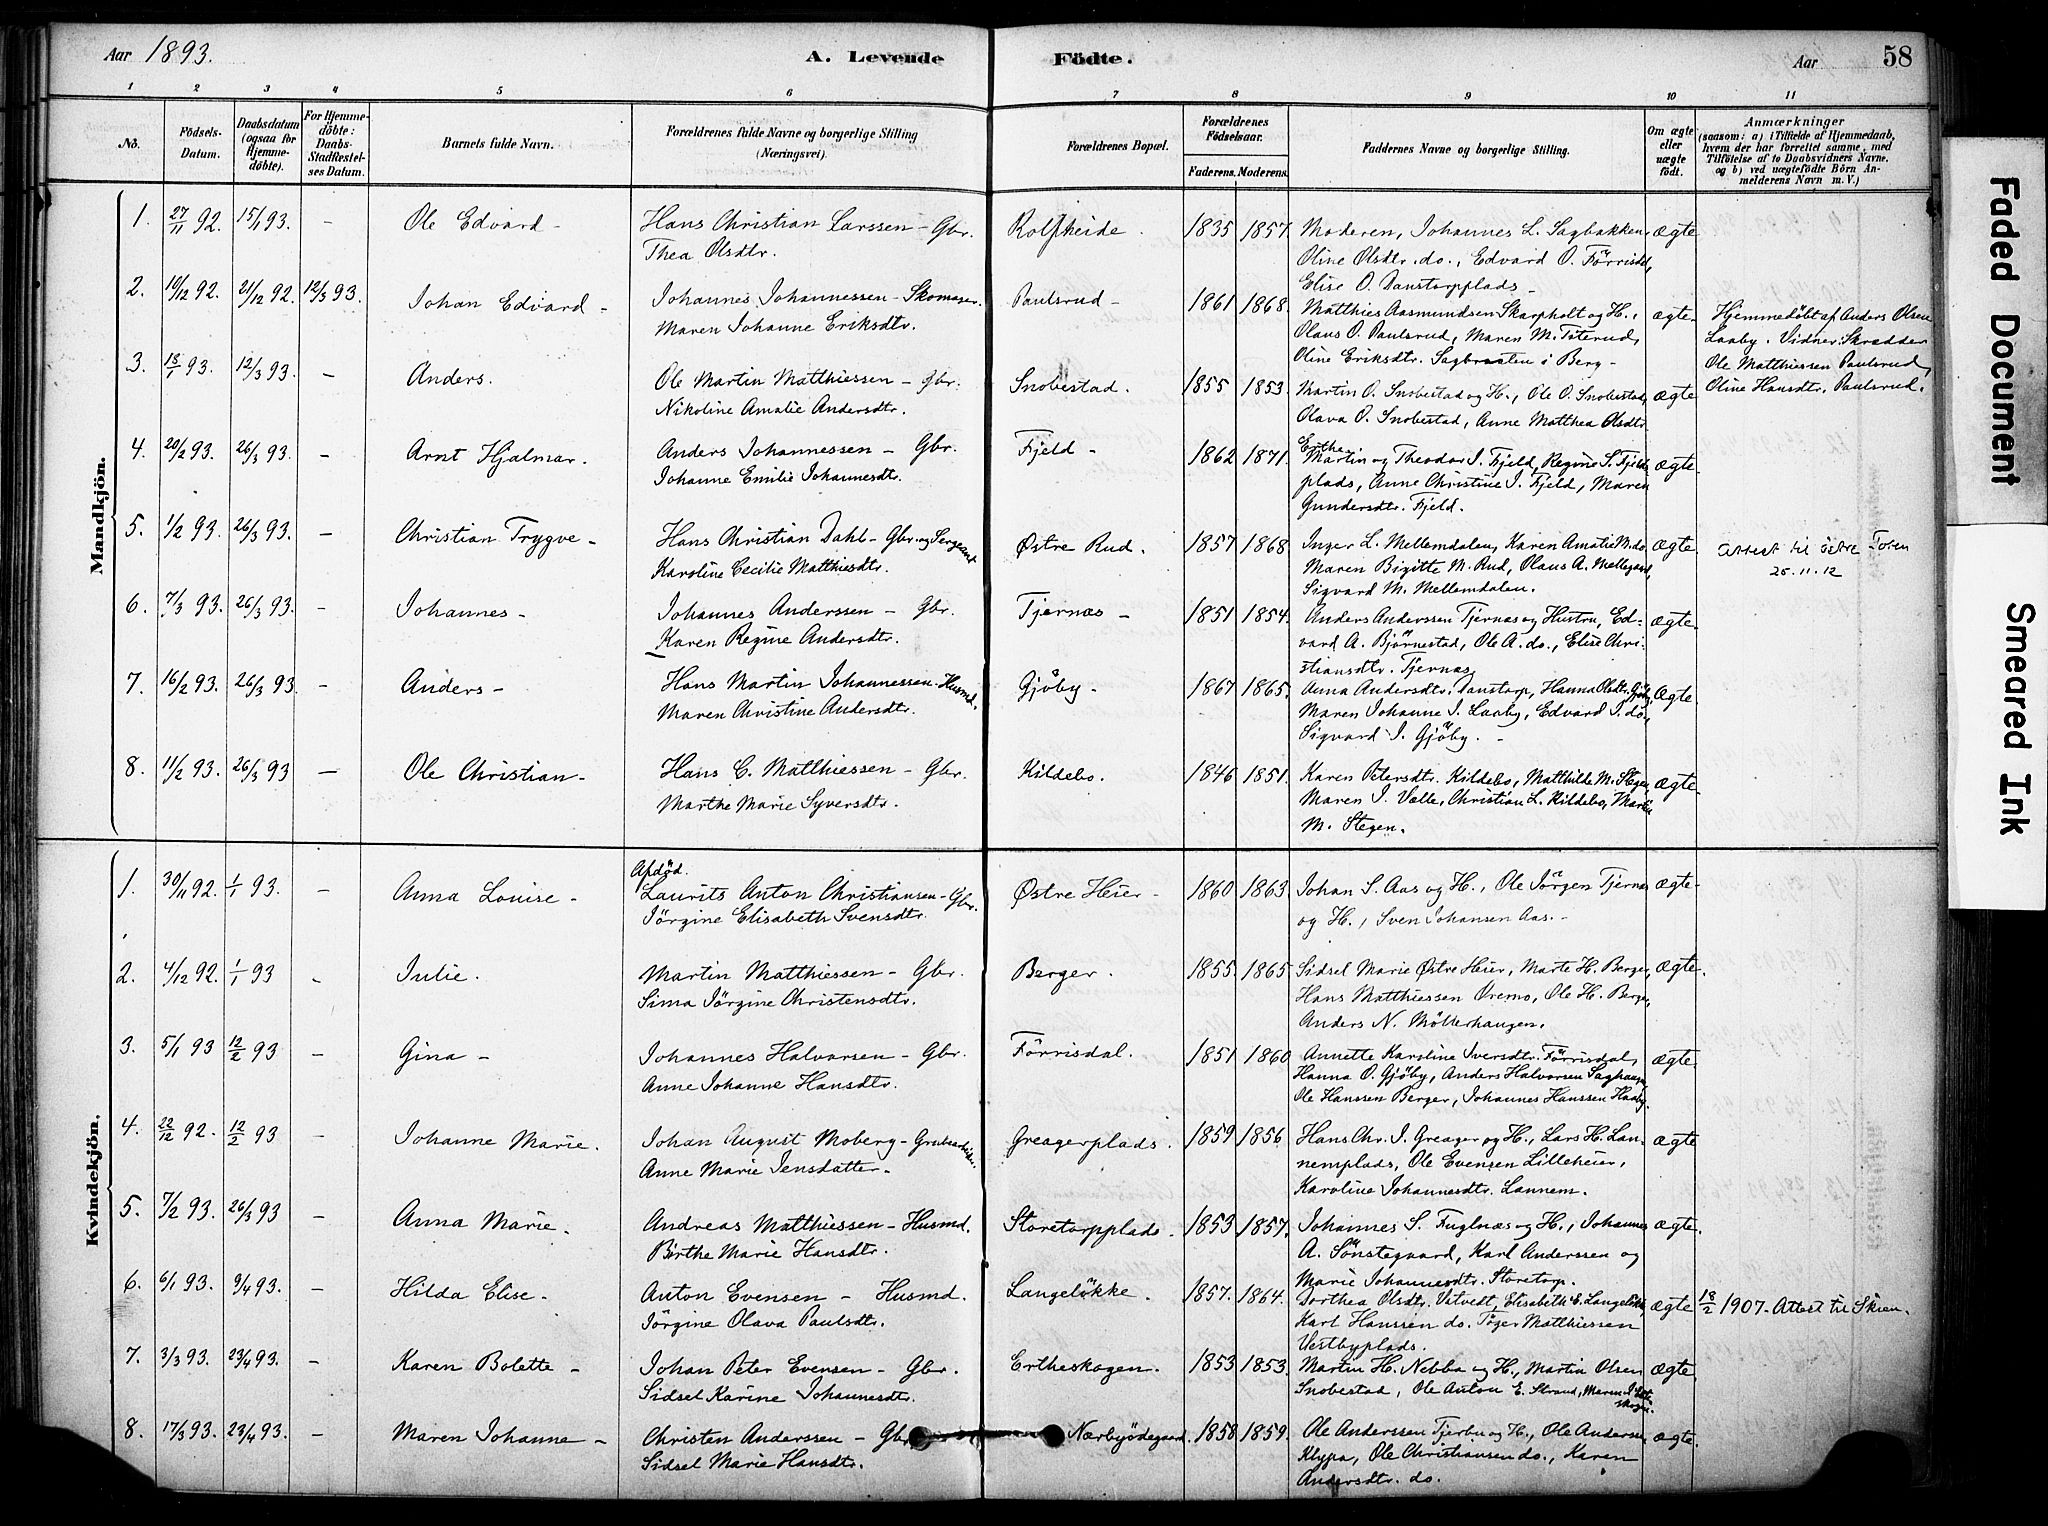 Aar 1893. A. Levende Födte. Aar 58
1 2 3 4 5 6 7 8 9 10 11
No. Födsels-Datum. Daabsdatum (ogsaa for Hjemme-döbte). For Hjemme-döbte: Daabs-Stadfæstel-ses Datum. Barnets fulde Navn. Forældrenes fulde Navne og borgerlige Stilling (Næringsvei). Forældrenes Bopæl. Forældrenes Födselsaar. Faderens. Moderens. Faddernes Navne og borgerlige Stilling. Om ægte eller uægte födt. Anmærkninger (saasom: a) i Tilfælde af Hjemmedaab, hvem der har forrettet samme, med Tilföielse af to Daabsvidners Navne, og b) ved uægtefödte Börn An-melderens Navn m.V.)
Mandkjön.
1. 27/11 92. 15/1 93. - Ole Edvard - Hans Christian Larssen - Gbr. Rolfsheide. 1835 1857. Moderen, Johannes L. Sagbakken, ægte
Thea Olsdtr. Oline Olsdtr. do., Edvard O. Förrisdal,
Elise O. Danstorpplads -
2. 19/12 92. 21/12 92. 12/3 93. Johan Edvard - Johannes Johannessen - Skomager. Paulsrud - 1861 1868. Matthies Aasmundsen Skarpholt og H., ægte. Hjemmedöbt af Anders Olsen
Maren Johanne Eriksdtr. Olaus O. Paulsrud, Maren M. Toterud, Laaby. Vidner: Skrædder
Oline Eriksdtr. Sagbraaten i Berg - Ole Matthiessen Paulsrud,
Oline Hansdtr. Paulsrud.
3. 18/1 93. 12/3 93. - Anders. Ole Martin Matthiessen - Gbr. Snobestad. 1855 1853. Martin O. Snobestad og H., Ole O. Snobestad, ægte
Nikoline Amalie Andersdtr. Olava O. Snobestad, Anne Matthea Olsdtr.
Erthe
4. 20/2 93. 26/3 93. - Arnt Hjalmar. Anders Johannessen - Gbr. Fjeld - 1862 1871. Martin og Theodor I. Fjeld, Regine S. Fjeld- ægte.
Johanne Emilie Johannesdtr. plads, Anne Christine I. Fjeld, Maren
Gundersdtr. Fjeld.
5. 1/2 93. 26/3 93. - Christian Trygve - Hans Christian Dahl - Gbr. og Sergeant Østre Rud. 1857 1868. Inger L. Mellemdalen, Karen Amalie M. do ægte. Attest til østre Toten
Karoline Cecilie Matthiesdtr. Maren Birgitte M. Rud, Olaus A. Mellegaard, 25.11.12
Sigvard M. Mellemdalen.
6. 7/3 93. 26/3 93. - Johannes - Johannes Anderssen - Gbr. Tjernæs - 1851 1854. Anders Anderssen Tjernæs og Hustru, Ed- ægte.
Karen Regine Andersdtr. vard A. Björnestad, Ole A. do., Elise Chri-
stiansdtr. Tjernæs
7. 16/2 93. 26/3 93. - Anders - Hans Martin Johannessen - Husmd. Gjöby - 1867 1865. Anna Andersdtr. Danstorp, Hanna Olsdtr. Gjöby, ægte.
Maren Christine Andersdtr. Maren Johanne I. Laaby, Edvard I. do,
Sigvard I. Gjöby. -
8. 11/2 93. 26/3 93 - Ole Christian - Hans C. Matthiessen - Gbr. Kildebo. 1846 1851. Karen Petersdtr. Kildebo, Matthilde M. Stegen, ægte.
Marthe Marie Syversdtr. Maren I. Valle, Christian L. Kildebo, Martin
M. Stegen.
Kvindekjön.
Afdöd.
1. 30/11 92. 1/1 93. - Anna Louise - Laurits Anton Christiansen - Gbr. Østre Heier - 1860 1863. Johan S. Aas og H., Ole Jörgen Tjernæs ægte.
Jörgine Elisabeth Svensdtr. og H., Sven Johansen Aas. -
2. 4/12 92. 1/1 93 - Julie. Martin Matthiessen - Gbr. Berger. 1855. 1865. Sidsel Marie Østre Heier, Marte H. Berger, ægte.
Sima Jörgine Christensdtr. Hans Matthiessen Vremo, Ole H. Berger,
Anders N. Möllerhaugen.
3. 5/1 93 12/2 93 - Gina - Johannes Halvorsen - Gbr. Förrisdal. 1851 1860 Annette Karoline Iversdtr. Förrisdal, ægte.
Anne Johanne Hansdtr. Hanna O. Gjöby, Anders Halvorsen Saghaugen,
Ole Hanssen Berger, Johannes Hanssen Haaby.
4. 22/12 92. 12/2 93 - Johanne Marie. Johan August Moberg - Grubearbeider. Greagerplads. 1859 1856. Hans Chr. I. Greager og H., Lars H. Lan- ægte
Anne Marie Jensdatter. nemplads, Ole Evensen Lilleheier,
Karoline Johannesdtr. Lannem.
5. 7/2 93. 26/3 93 - Anna Marie. Andreas Matthiessen - Husmd. Storetorpplads. 1853 1857. Johannes S. Fuglnæs og H., Johannes ægte.
Birthe Marie Hansdtr. A. Sönstegaard, Karl Anderssen og
Marie Johannesdtr. Storetorp.
6. 6/1 93. 9/4 93. - Hilda Elise - Anton Evensen - Husmd. Langelökke. 1857. 1864. Dorthea Olsdtr. Vatvedt, Elisabeth E. Langelökke, ægte 18/2 1907. Attest til Skien.
Jörgine Olava Paulsdtr. Karl Hanssen do. Töger Matthiessen
Vestbyplads.
7. 3/3 93. 23/4 93. - Karen Bolette - Johan Peter Evensen - Gbr. Ertheskogen. 1853 1853. Martin H. Nebba og H., Martin Olsen ægte
Sidsel Karine Johannesdtr. Snobestad, Ole Anton E. Strand, Maren I. Erte-
skogen.
8. 17/3 93. 23/4 93. - Maren Johanne - Christen Anderssen - Gbr. Nærbyödegaard. 1858 1859. Ole Anderssen Tjerbu og H., Ole Andersen ægte.
Sidsel Marie Hansdtr. Klypa, Ole Christiansen do., Karen
Andersdtr. do.
Faded Document
Smeared Ink